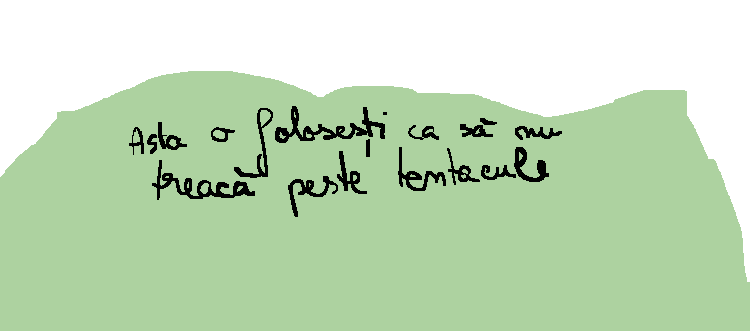 Asta o folosești ca să nu
treacă peste tentacule